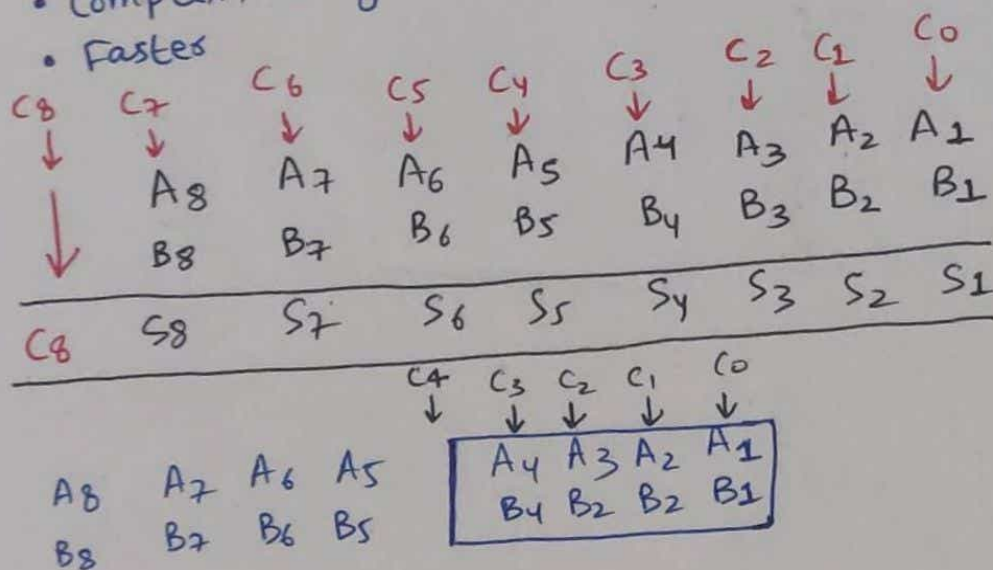 • Faster
C8 C7 C6 C5 C4 C3 C2 C1 C0
A8 A7 A6 A5 A4 A3 A2 A1
B8 B7 B6 B5 B4 B3 B2 B1
C8 S8 S7 S6 S5 S4 S3 S2 S1
C4 C3 C2 C1 C0
A8 A7 A6 A5 A4 A3 A2 A1
B8 B7 B6 B5 B4 B2 B2 B1